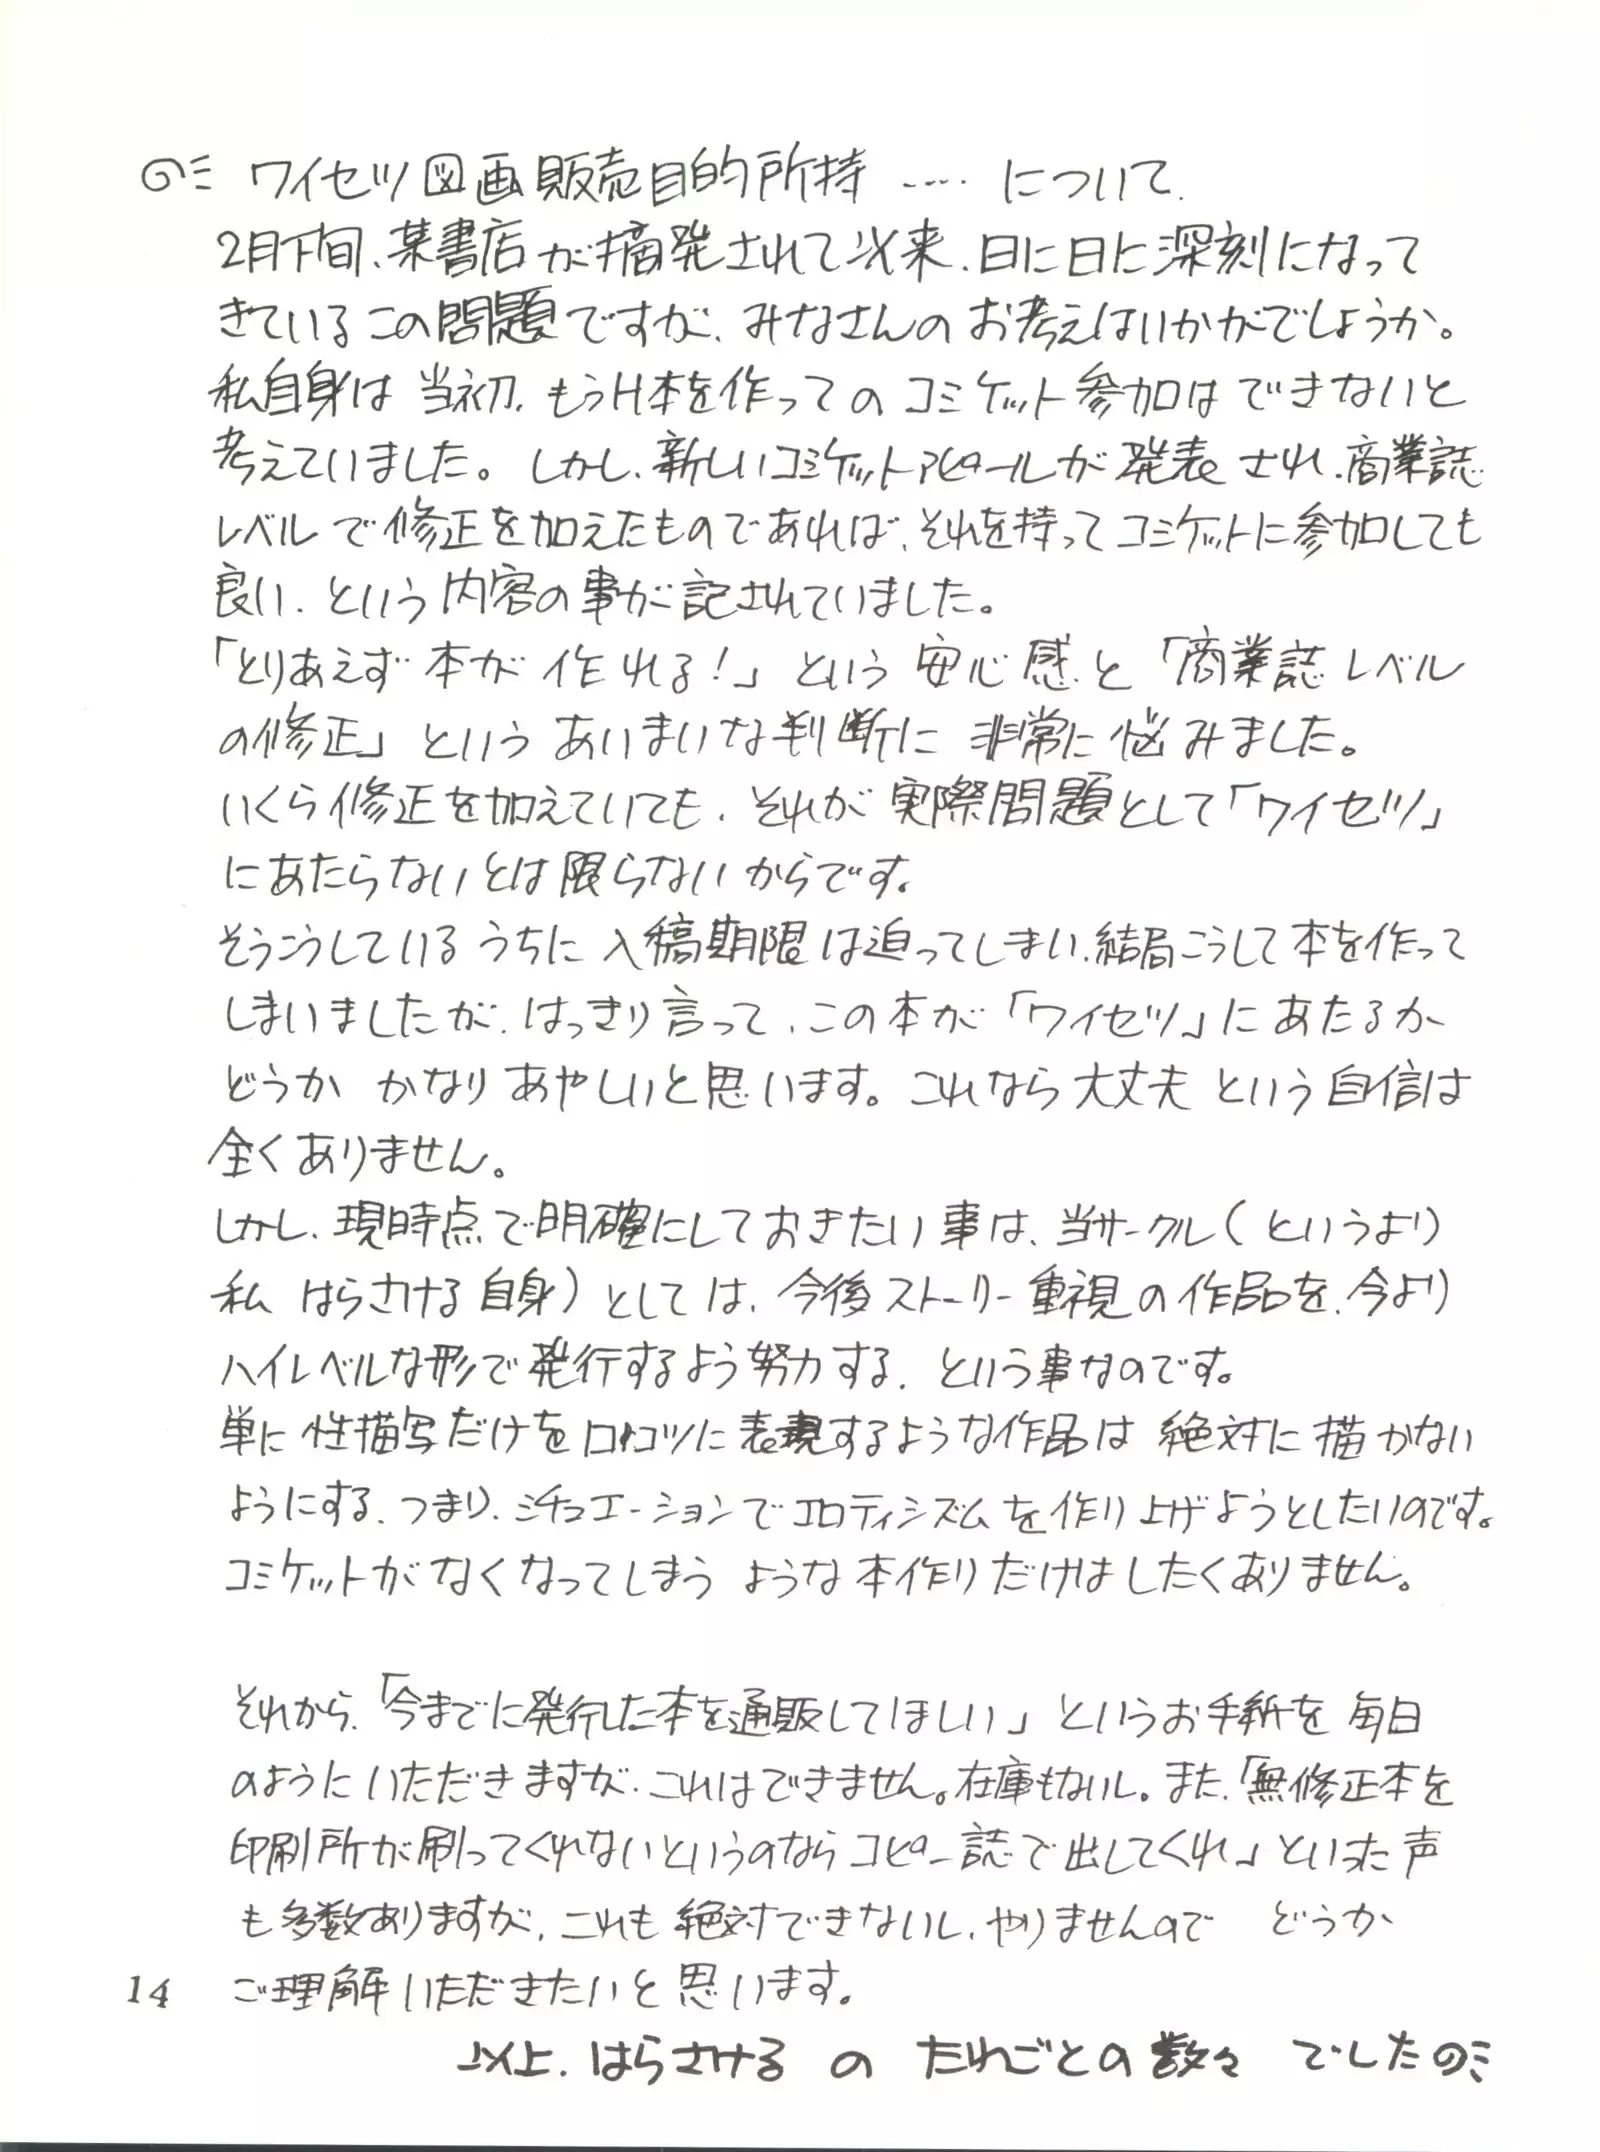 ワイセツ図画販売目的所持 ‥‥‥ について.
2月下旬、某書店が摘発されて以来、日に日に深刻になって
きているこの問題ですが、みなさんのお考えはいかがでしょうか。
私自身は当初、もうH本を作ってのコミケット参加はできないと
考えていました。しかし、新しいコミケットアピールが発表され、商業誌
レベルで修正を加えたものであれば、それを持ってコミケットに参加しても
良い、という内容の事が記されていました。
「とりあえず本が作れる!」という安心感と「商業誌レベル
の修正」というあいまいな判断に非常に悩みました。
いくら修正を加えていても、それが実際問題として「ワイセツ」
にあたらないとは限らないからです。
そうこうしているうちに入稿期限は迫ってしまい、結局こうして本を作って
しまいましたが、はっきり言って、この本が「ワイセツ」にあたるか
どうか かなりあやしいと思います。これなら大丈夫という自信は
全くありません。
しかし、現時点で明確にしておきたい事は、当サークル(というより
私 はらさける自身)としては、今後ストーリー重視の作品を、今より
ハイレベルな形で発行するよう努力する、という事なのです。
単に性描写だけをロコツに表現するような作品は絶対に描かない
ようにする、つまり、シチュエーションでエロティシズムを作り上げようとしたいのです。
コミケットがなくなってしまうような本作りだけはしたくありません。
それから、「今までに発行した本を通販してほしい」というお手紙を毎日
のようにいただきますが、これはできません。在庫もないし。また、「無修正本を
印刷所が刷ってくれないというのならコピー誌で出してくれ」といった声
も多数ありますが、これも絶対できないし、やりませんので どうか
ご理解いただきたいと思います。
以上、はらさける の たわごとの数々 でした
14